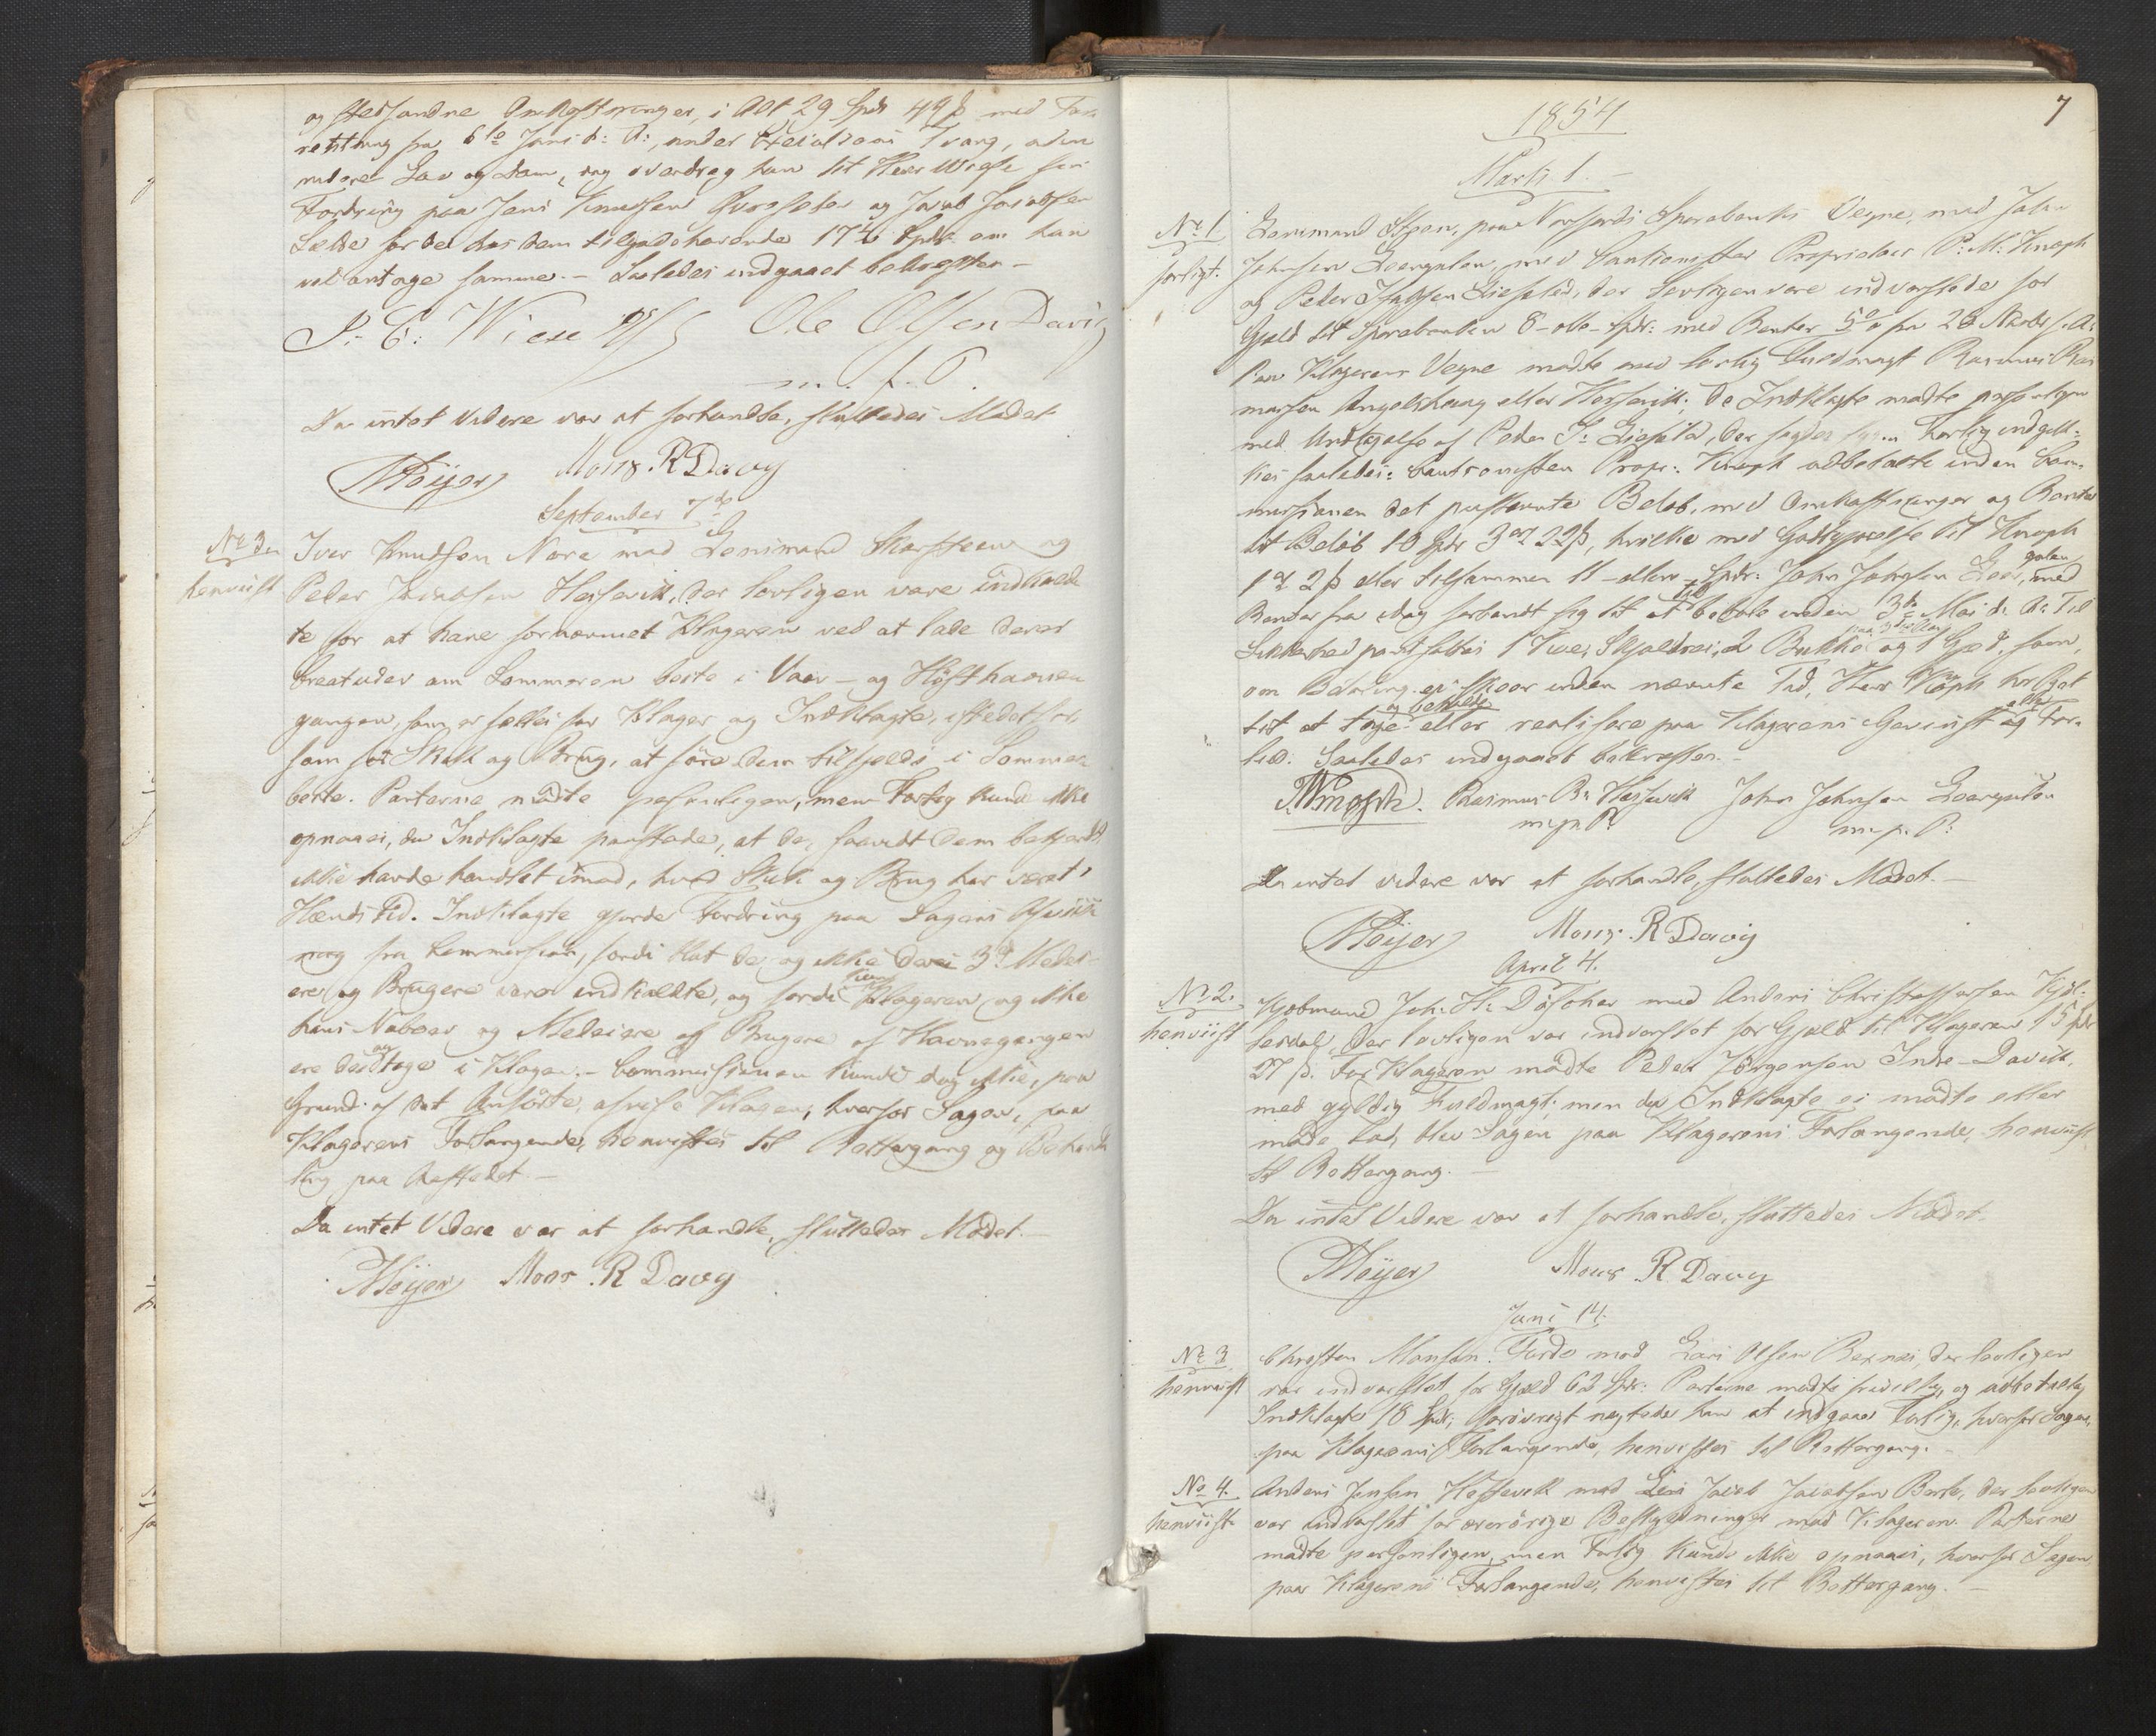 og stedfundne Omkostninger, i Alt 29 Spd 49 ß med For-
retning fra 6te Juni d: A:, under Executions Tvang, uden
videre Lov og Dom, og overdrog han til Herr Wiese sin
Fordring paa Jens Knudsen og Jacob Jacobsen
for det hos dem tilgodehavende 17½ Spdlr om han
vil antage samme. – Saaledes indgaaet bekræftes –
P. C: Wiese Ole Olsen Davig
m. f. P.
Da intet Videre var at forhandle, sluttedes Mødet
Møijer Mons. R Davig
September 7de
No 3
henviist
Iver Knudsen Nore mod Lensmand og
Peder Jacobsen Hessevik, der lovligen vare indkald-
te for at have fornærmet Klageren ved at lade deres
Creaturer om Sommeren beite i Vaar- og Høsthavne
gangen, som er fælles for Klager og Indklagte, istedetfor,
som før Skik og Brug, at føre dem tilfjelds i Sommer
beite. Parterne mødte personligen, men Forlig kunde ikke
opnaaes, da Indklagte paastode, at de, saavidt dem betræffer
ikke havde handlet imod, hvad Skik og Brug har været,
Hænds tid. Indklagte gjorde Fordring paa Sagens Afviis
ning fra Commissionen, fordi at de og ikke deres 3de Medei-
ere og Brugere vare indkaldte, og fordi kun Klageren og ikke
hans Naboer og Medeiere og Brugere af Havnegangen
ere deeltage i Klagen. – Commissionen kunde dog ikke, paa
Grund af det Anførte, afvise Klagen, hvorfor Sagen, paa
Klagerens Forlangende, henvistes til Rettergang og Behand
ling paa Aastedet –
Da intet Videre var at forhandle, sluttedes Mødet. –
Møijer Mons. R Davig
7
1854
Marts 1. –
No 1
forligt.
Lensmand paa Sparebanks Vegne, mod John
Johnsen Leergulen, med Cautionister Proprietær P: M: Knoph
og Peder der lovligen vare indvarslede for
Gjæld til Sparebanken 8–otte– Spdr: med Renter 5% fra 28 Novbr f. A:
Paa Klagerens Vegne mødte med lovlig Fuldmagt Rasmus Ras
mussen Angelshaug eller Hessevik; De Indklagte mødte personligen
med Undtagelse af Peder I: der sagdes syg. Forlig indgik-
kes saaledes: Cautionisten Propr: Knoph udbetalte inden Com-
missionen det paastevnte Beløb, med Omkostninger og Renter
til Beløb 10 Spdr 3 ort 22 ß, hvilke med Godtgjørelse til Knoph
1 ort 2 ß eller tilsammen 11 – elleve – Spdr: John Johnsen Leergulen, med
Renter fra idag forbandt sig til at betale inden 3die Mai d: A: Til
Sikkerhed pantsattes 1 Skjældrei, 2 Bukke og 1 Gjed, som,
om Betaling ei skeer inden nævnte Tid, Herr Knoph har Ret
til at tage og beholde eller realisere paa Klagerens Gevinst eller For-
lis. Saaledes indgaaet bekræftes. –
Knoph. Rasmus R: Hessevik John Johnsen Leergulen
m. p. P: m. p. P:
Da intet videre var at forhandle, sluttedes Mødet. –
Møijer Mons. R Davig
April 4.
No 2.
henviist
Kjøbmand Joh: H: mod Anders Christoffersen
der lovligen var indvarslet for Gjæld til Klageren 15 Spdr
27 ß. For Klageren mødte Peder Jørgensen Indre-Davik,
med gyldig Fuldmagt; men da Indklagte ei mødte eller
møde lod, blev Sagen paa Klagerens Forlangende, henviist
til Rettergang. –
Da intet Videre var at forhandle, sluttedes Mødet.
Møijer Mons R Davig
Juni 14.
No 3
henviist
Christen Monsen Førde mod Lars Olsen der lovligen
var indvarslet for Gjæld 62 Spdr: Parterne mødte frivillig, og udbetalte
Indklagte 18 Spdr; forøvrigt nægtede han at indgaae Forlig, hvorfor Sagen,
paa Klagerens Forlangende, henvistes til Rettergang. –
No 4.
henviist
Anders Jensen Hessevik mod Jacob Jacobsen der lovligen
var indvarslet for ærerørige Beskyldninger mod Klageren. Parterne
mødte personligen, men Forlig kunde ikke opnaaes, hvorfor Sagen
paa Klagerens Forlangende, henvistes til Rettergang. –